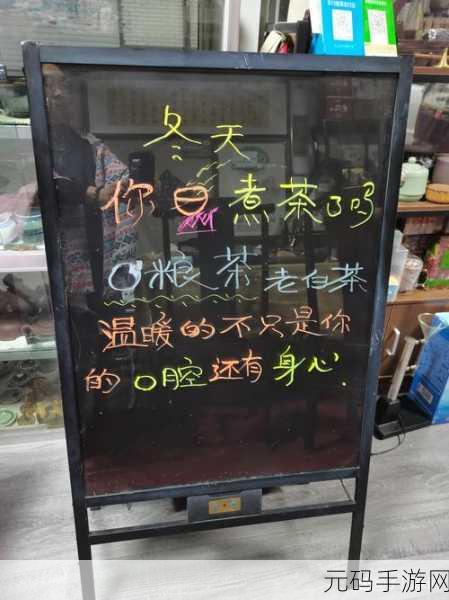 冬天
你煮茶了吗
口粮茶 老白茶
温暖的不只是你
的口腔还有身心.
元码手游网